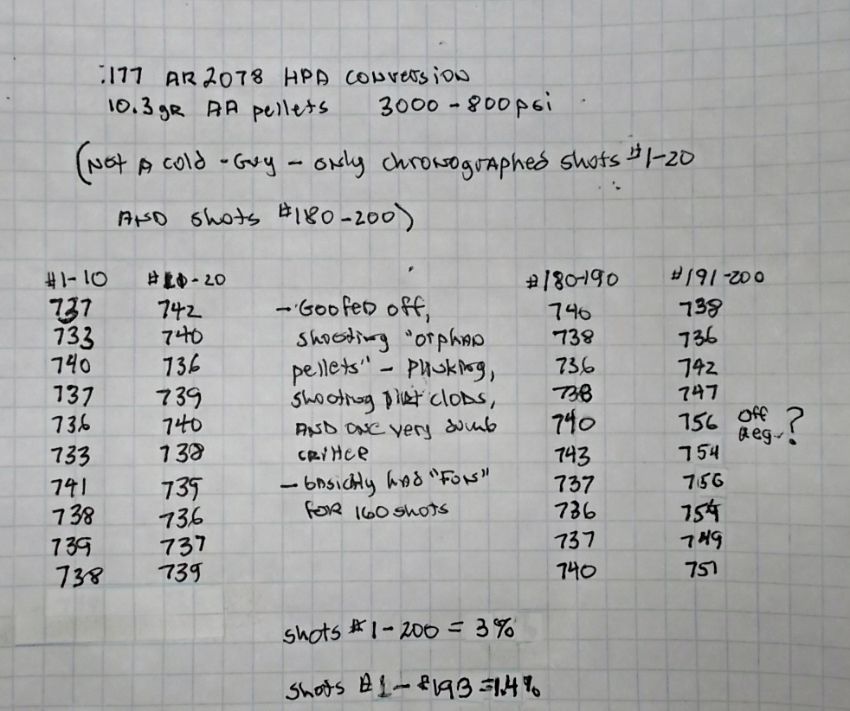 .177 AR2078 HPA CONVERSION
10.3gr AA pellets 3000-800psi
(Not A Cold-Guy - only chronographed shots #1-20
AND shots #180-200)
#1-10 #10-20 #180-190 #191-200
737 742 - Goofed off, 740 738
733 740 shooting "orphan 738 736
740 736 pellets" - plinking, 736 742
737 739 shooting dirt clods, 738 747
736 740 AND ONE very dumb 740 756 off Reg-?
733 738 critter 743 754
741 739 - basicly had "Fun" 737 756
738 736 FOR 160 shots 736 754
739 737 737 749
738 739 740 751
shots #1-200 = 3%
shots #1-#193 = 1.4%